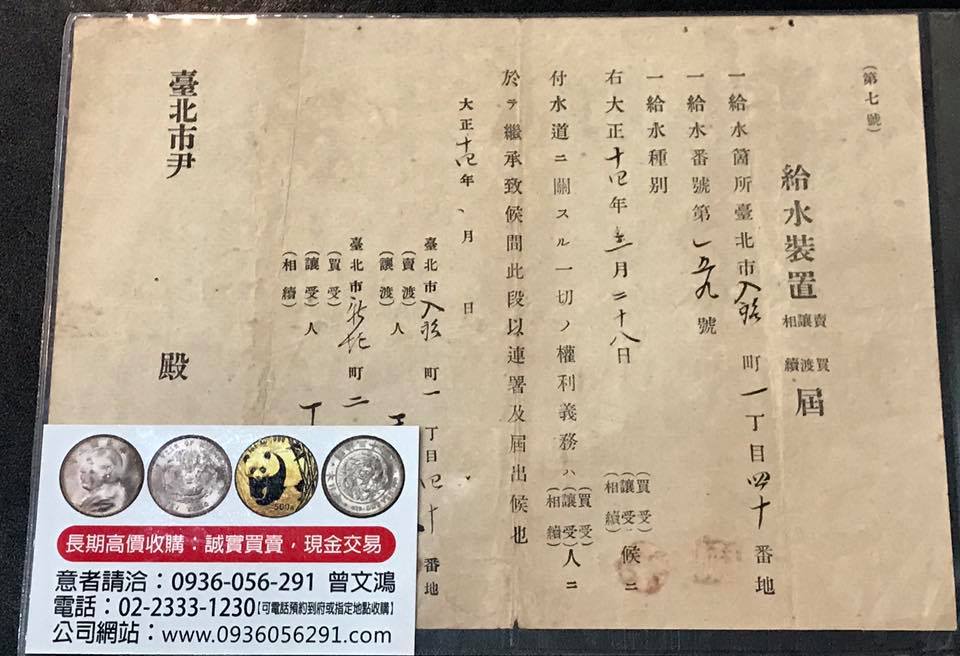 (第七號)
給水装置 賣買 讓渡 相續 屆
一給水箇所臺北市入船町一丁目四十番地
一給水番號第一五九號
一給水種別
右大正十四年 月二十八日 (買受) (讓受) (相續) 候ニ
付水道ニ關スル一切ノ權利義務ハ (買受) (讓受) (相續) 人ニ
於テ繼承致候間此段以連署及屆出候也
大正十四年 月 日
臺北市入船町一丁目四十番地
(賣渡) (讓渡) 人
臺北市 町二丁
(買受) (讓受) (相續) 人
臺北市尹 殿
長期高價收購：誠實買賣，現金交易
意者請洽：0936-056-291 曾文鴻
電話：02-2333-1230【可電話預約到府或指定地點收購】
公司網站：www.0936056291.com